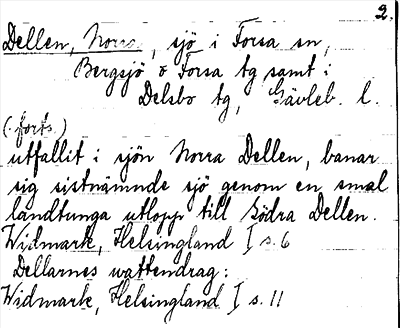 2.
Dellen, Norra, sjö i Forsa sn,
Bergsjö o Forsa tg samt i
Delsbo tg, Gävleb. l.
(forts.)
utfallit i sjön Norra Dellen, banar
sig sistnämnde sjö genom en smal
landtunga utlopp till Södra Dellen.
Widmark, Helsingland I s. 6
Dellarnes wattendrag:
Widmark, Helsingland I s. 11